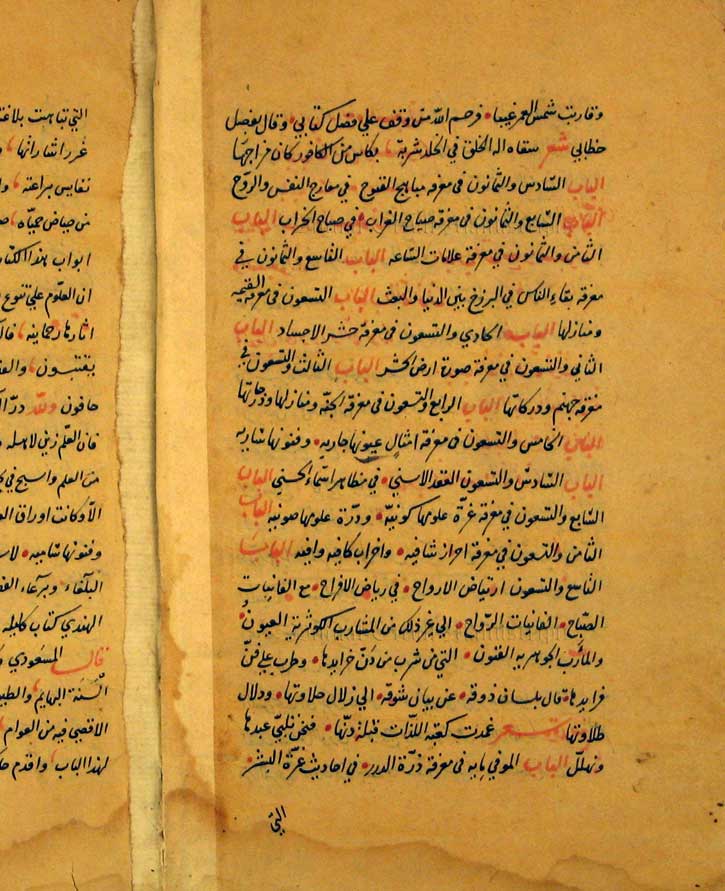 وقاربت شمس العمر غيبها فرحم الله من وقف علي فضل كتابي وقال بفضل
خطابي شعر سقاه اله الخلق في الخلد شربة بكاس من الكافور كان مزاجها
الباب السادس والثمانون في معرفة مباهج الفتوح في معارج النفس والروح
الباب السابع والثمانون في معرفة صياح الغراب في صباح الخراب الباب
الثامن والثمانون في معرفة علامات الساعه الباب التاسع والثمانون في
معرفة بقاء الناس في البرزخ بين الدنيا والبعث الباب التسعون في معرفة القيمة
ومنازلها الباب الحادي والتسعون في معرفة حشر الاجساد الباب
الثاني والتسعون في معرفة صورة ارض الحشر الباب الثالث والتسعون في
معرفة جهنم ودركاتها الباب الرابع والتسعون في معرفة الجنة ومنازلها ودرجاتها
الباب الخامس والتسعون في معرفة امثال عيونها جاريه وفنونها ساريه
الباب السادس والتسعون العقد الاسني في مظاهر اسماء الحسني الباب
السابع والتسعون في معرفة غرة علومها كونية ودرة علومها صونية الباب
الثامن والتسعون في معرفة احراز شافيه واحزاب كافيه وافيه الباب
التاسع والتسعون ارتياض الارواح في رياض الافراح مع الغانيات
الصباح الفانيات الرواح الي غير ذلك من المشارب الكوثرية العيون
والمآرب الجوهريه الفنون التي من شرب من دن خرايدها وطرب علي فن
فرايدها قال بلسان ذوقه عن بيان شوقه الي زلال حلاوتها ودلال
طلاوتها شعر غدت كعبة اللذات قبلة دنها فنحن نلبي عندها
ونهلل الباب الموفي مايه في معرفة درة الدرر في احاديث غرة البشر
التي
التي تباهت بلاغة
غرر اشاراتها
نفايس براعته
من حياض
ابواب هذا الكتاب
ان العلوم علي تنوع
حافون ولله در
فان العلم زين لاهله
من العلم واسبح في
الا وكانت اوراق
البلغاء
الهندي كتاب كليله
قال المسعودي
السنة البهايم والطير
الاقصي فيه من العوام
لهذا الباب واقدم